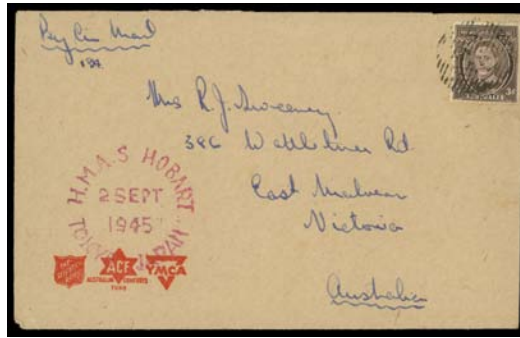 By Air Mail
Mrs R.J. Sweeney
386 Wattletree Rd.
East Malvern
Victoria
Australia
H.M.A.S HOBART
2 SEPT
1945
JAPAN
ACF
AUSTRALIAN COMFORTS
FUND
YMCA